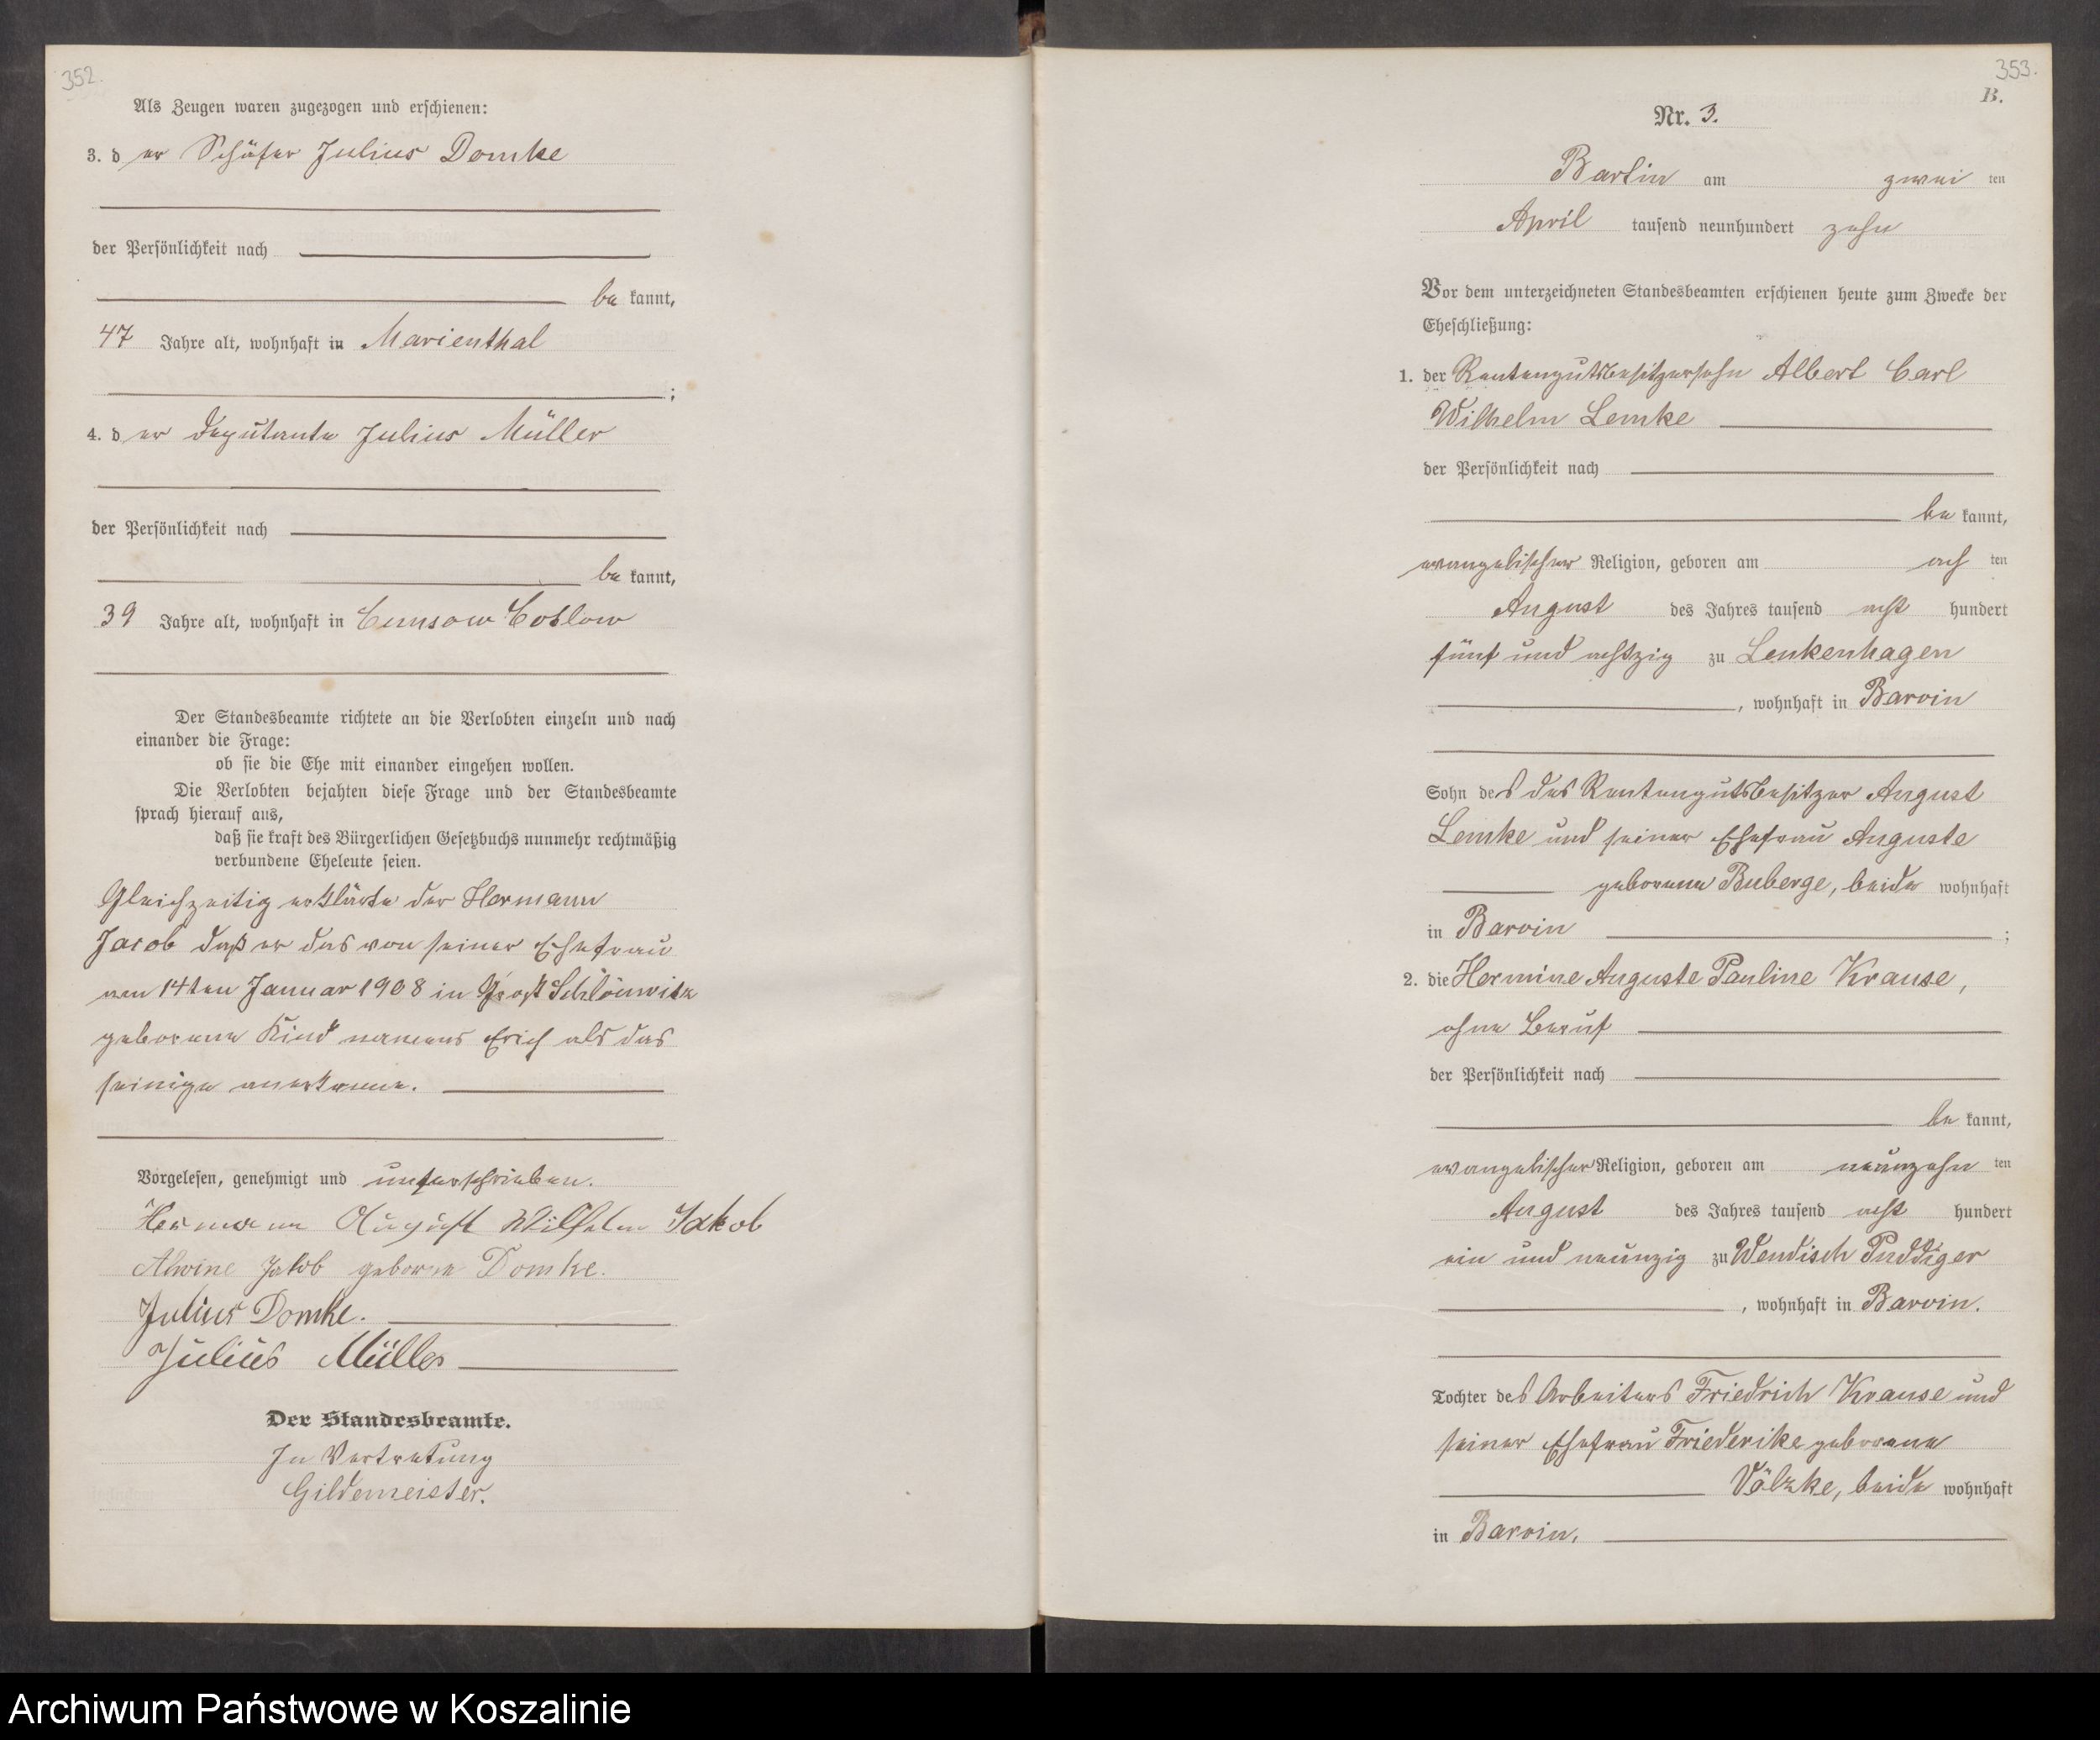 352.
Als Zeugen waren zugezogen und erschienen:
3. der Schäfer Julius Domke
der Persönlichkeit nach
be kannt,
47 Jahre alt, wohnhaft in Marienthal
;
4. der Deputante Julius Müller
der Persönlichkeit nach
be kannt,
39 Jahre alt, wohnhaft in Cunsow Coslow
Der Standesbeamte richtete an die Verlobten einzeln und nach
einander die Frage:
ob sie die Ehe mit einander eingehen wollen.
Die Verlobten bejahten diese Frage und der Standesbeamte
sprach hierauf aus,
daß sie kraft des Bürgerlichen Gesetzbuchs nunmehr rechtmäßig
verbundene Eheleute seien.
Gleichzeitig erklärte der Hermann
Jacob daß er das von seiner Ehefrau
am 14ten Januar 1908 in Groß Schlönwitz
geborene Kind namens Erich als das
seinige anerkenne.
Vorgelesen, genehmigt und unterschrieben.
Hermann August Wilhelm Jakob
Alwine Jakob geborene Domke.
Julius Domke.
Julius Müller
Der Standesbeamte.
In Vertretung
Gildemeister.
353.
B.
Nr. 3.
Bartin am zwei ten
April tausend neunhundert zehn
Vor dem unterzeichneten Standesbeamten erschienen heute zum Zwecke der
Eheschließung:
1. der Rentengutsbesitzersohn Albert Carl
Wilhelm Lemke
der Persönlichkeit nach
be kannt,
evangelischer Religion, geboren am ach ten
August des Jahres tausend acht hundert
fünf und achtzig zu Lenkenhagen
, wohnhaft in Barvin
Sohn des des Rentengutsbesitzer August
Lemke und seiner Ehefrau Auguste
geborene Buberge, beide wohnhaft
in Barvin ;
2. die Hermine Auguste Pauline Krause,
ohne Beruf
der Persönlichkeit nach
be kannt,
evangelischer Religion, geboren am neunzehn ten
August des Jahres tausend acht hundert
ein und neunzig zu Wendisch Puddiger
, wohnhaft in Barvin.
Tochter des Arbeiters Friedrich Krause und
seiner Ehefrau Friederike geborene
Völzke, beide wohnhaft
in Barvin.
Archiwum Państwowe w Koszalinie